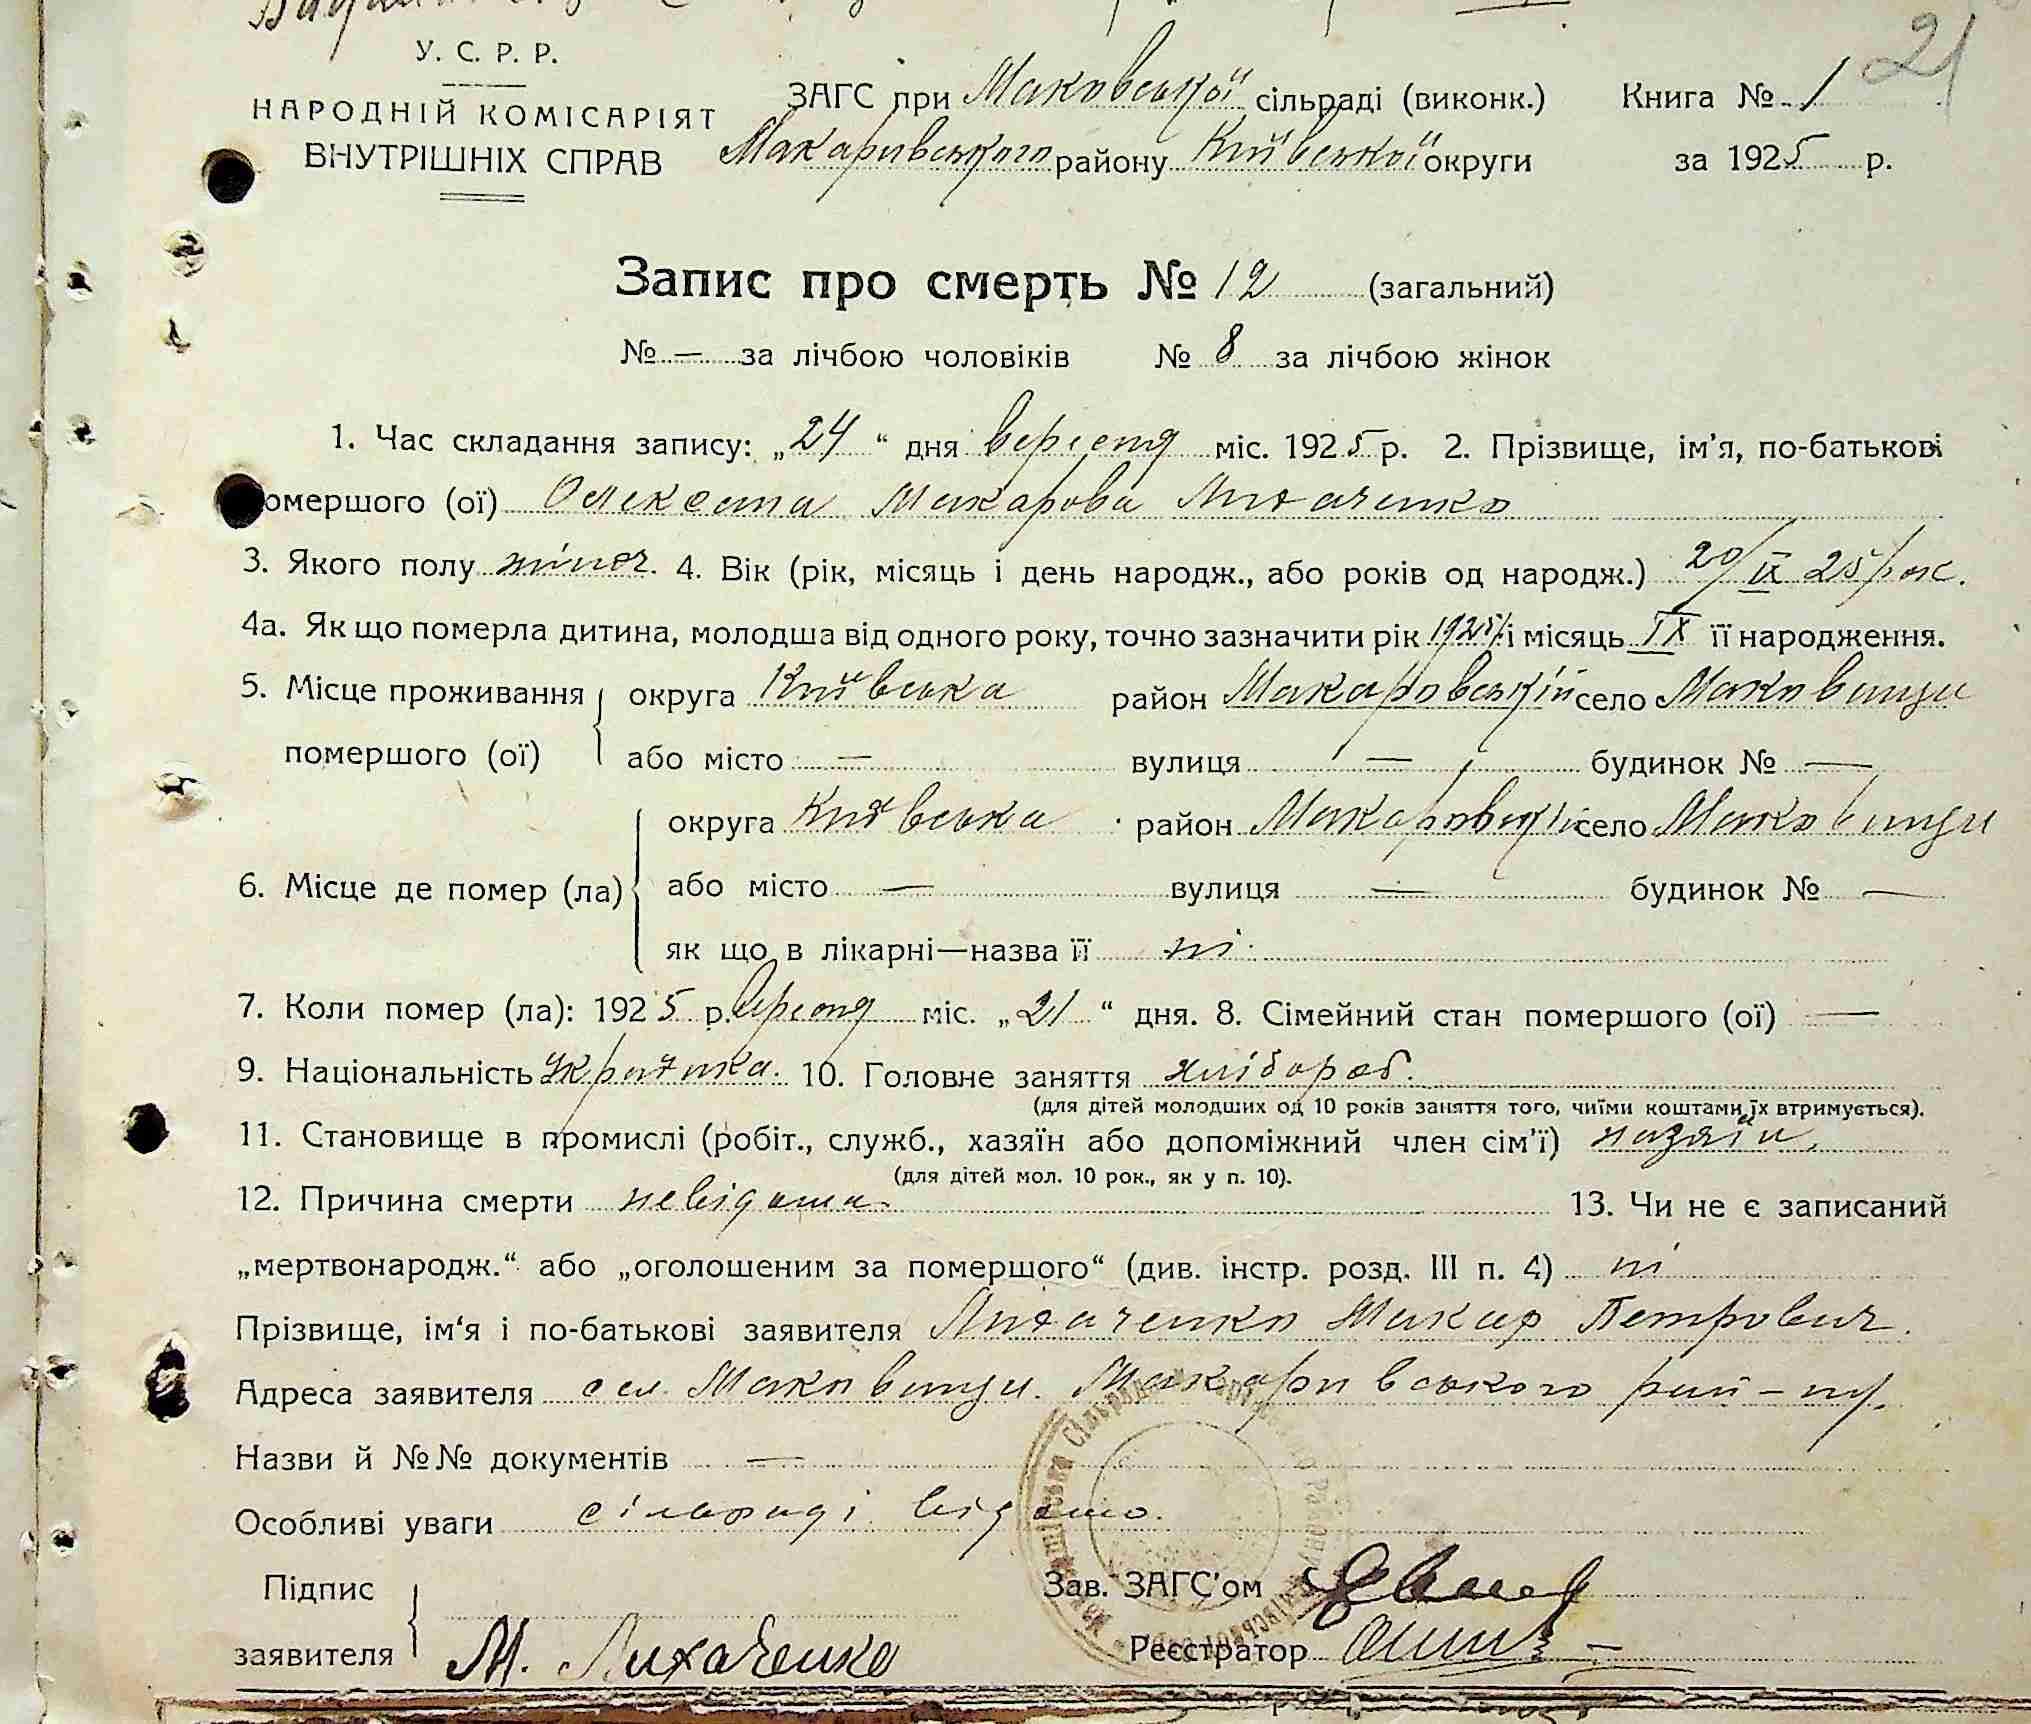 У. С. Р. Р.
НАРОДНІЙ КОМІСАРІЯТ
ВНУТРІШНІХ СПРАВ
21
ЗАГС при Маковської сільраді (виконк.) Книга № 1
Макарівського району Київської округи за 1925 р.
Запис про смерть № 12 (загальний)
№ — за лічбою чоловіків № 8 за лічбою жінок
1. Час складання запису: „24“ дня вересня міс. 1925 р. 2. Прізвище, ім'я, по-батькові
омершого (ої) Олександра Макарова Лихаченко
3. Якого полу жіноч. 4. Вік (рік, місяць і день народж., або років од народж.) 20/IX 25 рок.
4а. Як що померла дитина, молодша від одного року, точно зазначити рік 1925 і місяць IX її народження.
5. Місце проживання округа Київська район Макаровський село Маковищи
помершого (ої) або місто — вулиця — будинок № —
округа Київська район Макаровський село Маковищи
6. Місце де помер (ла) або місто — вулиця — будинок № —
як що в лікарні—назва її ні
7. Коли помер (ла): 1925 р. вересня міс. „21“ дня. 8. Сімейний стан помершого (ої) —
9. Національність Українка. 10. Головне заняття хлібороб.
(для дітей молодших од 10 років заняття того, чиїми коштами їх втримується).
11. Становище в промислі (робіт., служб., хазяїн або допоміжний член сім'ї) хазяїн.
(для дітей мол. 10 рок., як у п. 10).
12. Причина смерти невідома 13. Чи не є записаний
„мертвонародж.“ або „оголошеним за помершого“ (див. інстр. розд. III п. 4) ні
Прізвище, ім'я і по-батькові заявителя Лихаченко Макар Петрович.
Адреса заявителя сел. Маковищи. Макарівського рай-ну.
Назви й №№ документів —
Особливі уваги сільраді відомо.
Підпис Зав. ЗАГС'ом
заявителя М. Лихаченко Реєстратор